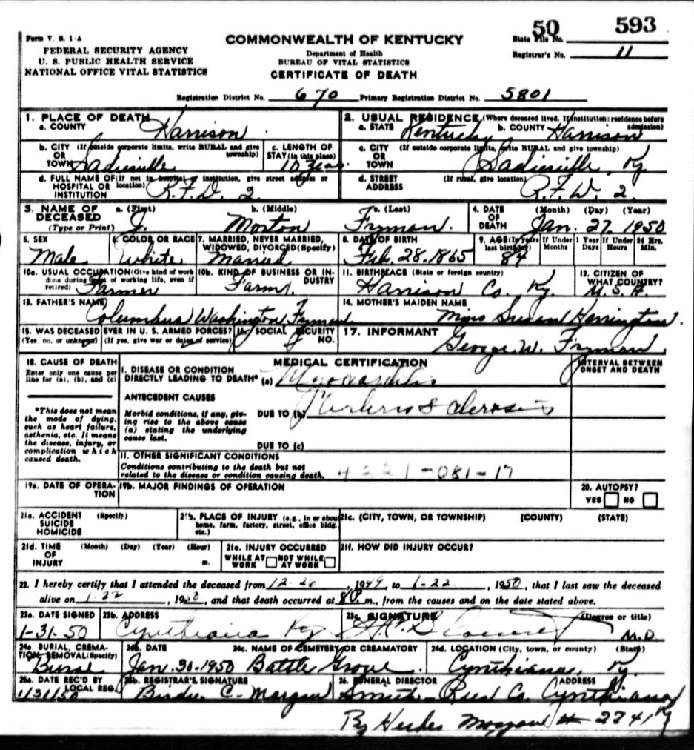 50 593
Form V. S. 1-A
COMMONWEALTH OF KENTUCKY
State File No.
FEDERAL SECURITY AGENCY
Department of Health
Registrar's No. 11
U. S. PUBLIC HEALTH SERVICE
BUREAU OF VITAL STATISTICS
NATIONAL OFFICE VITAL STATISTICS
CERTIFICATE OF DEATH
Registration District No. 670 Primary Registration District No. 5801
1. PLACE OF DEATH
a. COUNTY Harrison
2. USUAL RESIDENCE (Where deceased lived. If institution: residence before admission)
a. STATE Kentucky b. COUNTY Harrison
b. CITY (If outside corporate limits, write RURAL and give township)
OR
TOWN Sadieville
c. LENGTH OF STAY (in this place)
c. CITY (If outside corporate limits, write RURAL and give township)
OR
TOWN Sadieville, Ky.
d. FULL NAME OF (If not in hospital or institution, give street address or location)
HOSPITAL OR
INSTITUTION R.F.D. 2
d. STREET (If rural, give location)
ADDRESS R.F.D. 2.
3. NAME OF DECEASED a. (First) b. (Middle) c. (Last)
(Type or Print) J. Morton Fryman
4. DATE OF DEATH (Month) (Day) (Year)
Jan. 27, 1950
5. SEX 6. COLOR OR RACE 7. MARRIED, NEVER MARRIED, WIDOWED, DIVORCED (Specify) 8. DATE OF BIRTH 9. AGE (In years last birthday) If Under 1 Year Months Days If Under 24 Hrs. Hours Min.
Male White Married Feb. 28, 1865 84
10a. USUAL OCCUPATION (Give kind of work done during most of working life, even if retired) 10b. KIND OF BUSINESS OR INDUSTRY 11. BIRTHPLACE (State or foreign country) 12. CITIZEN OF WHAT COUNTRY?
Farmer Farm Harrison Co. Ky. U.S.A.
13. FATHER'S NAME 14. MOTHER'S MAIDEN NAME
Columbus Washington Fryman Susan Harrington
15. WAS DECEASED EVER IN U. S. ARMED FORCES? 16. SOCIAL SECURITY NO. 17. INFORMANT
(Yes, no, or unknown) (If yes, give war or dates of service) George W. Fryman
18. CAUSE OF DEATH
Enter only one cause per line for (a), (b), and (c)
*This does not mean the mode of dying, such as heart failure, asthenia, etc. It means the disease, injury, or complication which caused death.
MEDICAL CERTIFICATION
INTERVAL BETWEEN ONSET AND DEATH
I. DISEASE OR CONDITION
DIRECTLY LEADING TO DEATH* (a) Myocarditis
ANTECEDENT CAUSES
Morbid conditions, if any, giving rise to the above cause (a) stating the underlying cause last.
DUE TO (b)
DUE TO (c)
II. OTHER SIGNIFICANT CONDITIONS
Conditions contributing to the death but not related to the disease or condition causing death.
4221-081-17
19a. DATE OF OPERATION 19b. MAJOR FINDINGS OF OPERATION 20. AUTOPSY?
YES NO
21a. ACCIDENT (Specify)
SUICIDE
HOMICIDE
21b. PLACE OF INJURY (e.g., in or about home, farm, factory, street, office bldg. etc.)
21c. (CITY, TOWN, OR TOWNSHIP) (COUNTY) (STATE)
21d. TIME OF INJURY (Month) (Day) (Year) (Hour) m.
21e. INJURY OCCURRED
WHILE AT WORK NOT WHILE AT WORK
21f. HOW DID INJURY OCCUR?
22. I hereby certify that I attended the deceased from 12-20, 1949, to 1-22, 1950, that I last saw the deceased
alive on 1-22, 1950, and that death occurred at 8 P.m., from the causes and on the date stated above.
23a. DATE SIGNED 23b. ADDRESS 23c. SIGNATURE (Degree or title)
1-31-50 Cynthiana Ky M.D
24a. BURIAL, CREMATION, REMOVAL (Specify) 24b. DATE 24c. NAME OF CEMETERY OR CREMATORY 24d. LOCATION (City, town, or county) (State)
Burial Jan. 30-1950 Battle Grove Cynthiana, Ky.
25a. DATE REC'D BY LOCAL REG. 25b. REGISTRAR'S SIGNATURE 26. FUNERAL DIRECTOR ADDRESS
1/31/50 Birdie C. Morgan Smith-Rees Co. Cynthiana, Ky
By # 2241